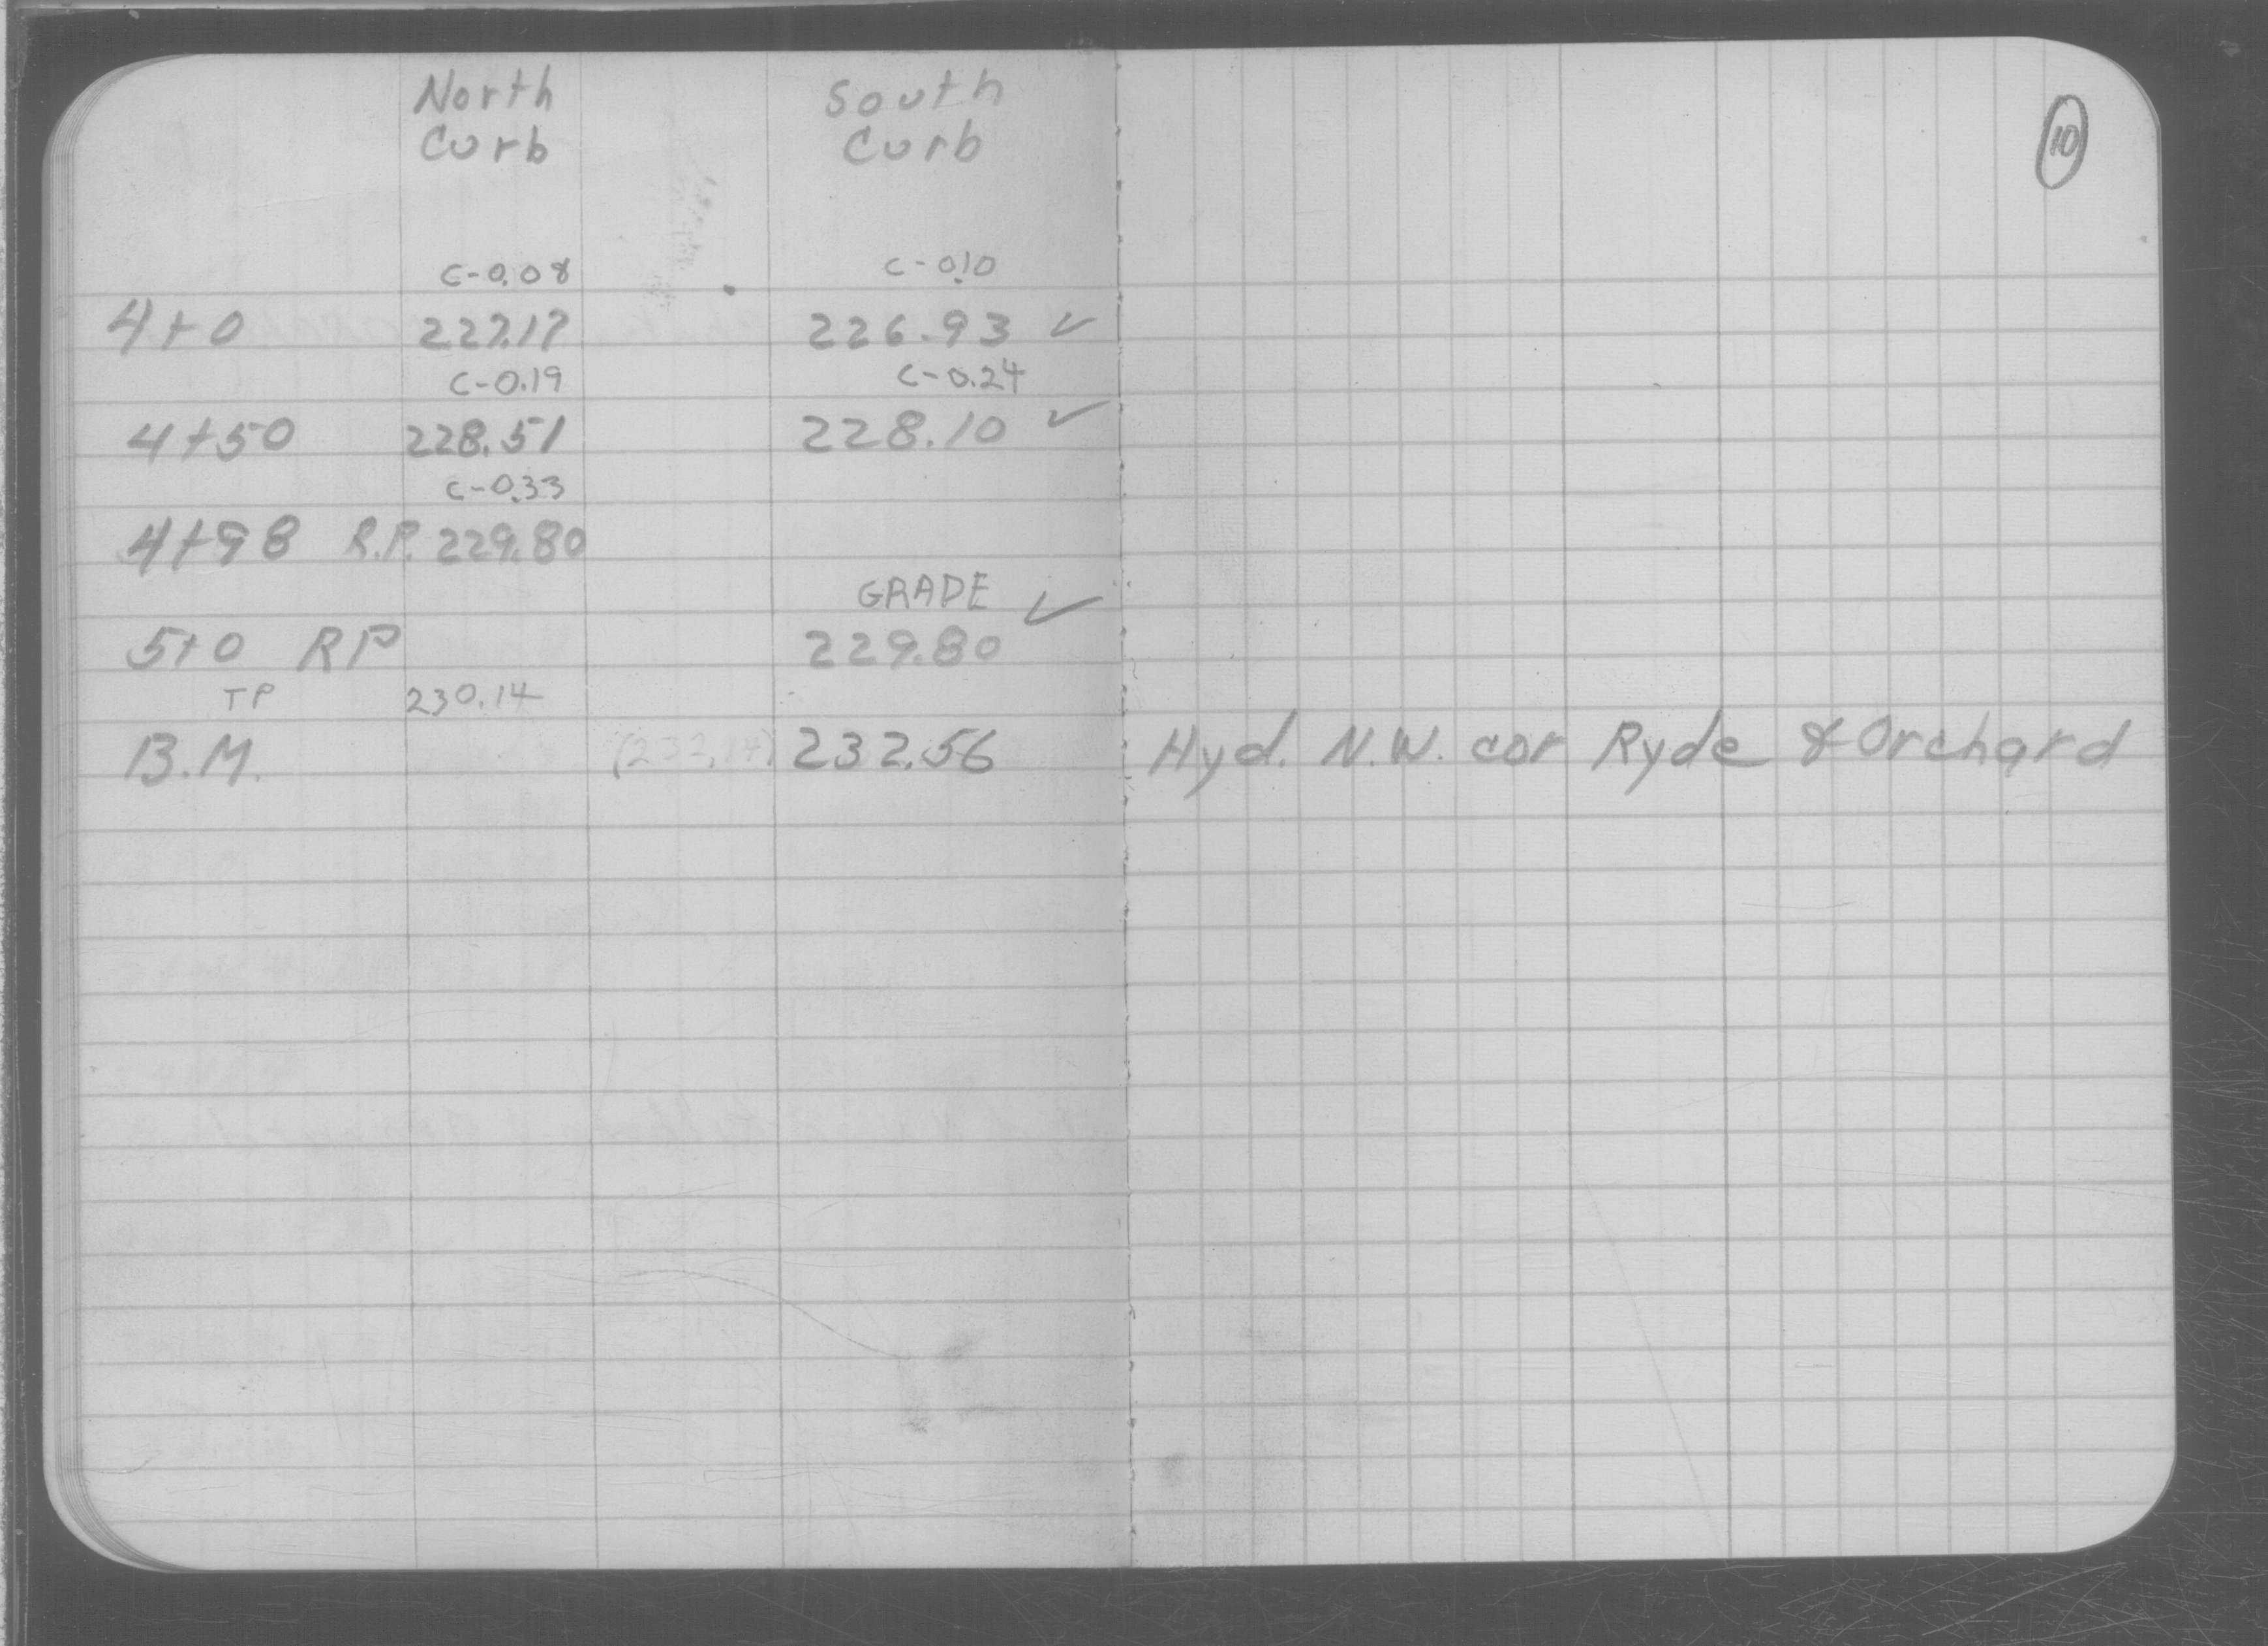 North South
Curb Curb
10
C-0.08 C-0.10
4+0 227.17 226.93 ✓
C-0.19 C-0.24
4+50 228.51 228.10 ✓
C-0.33
4+98 R.P. 229.80
GRADE ✓
5+0 RP 229.80
TP 230.14
B.M. (232.14) 232.56 Hyd. N.W. cor Ryde & Orchard